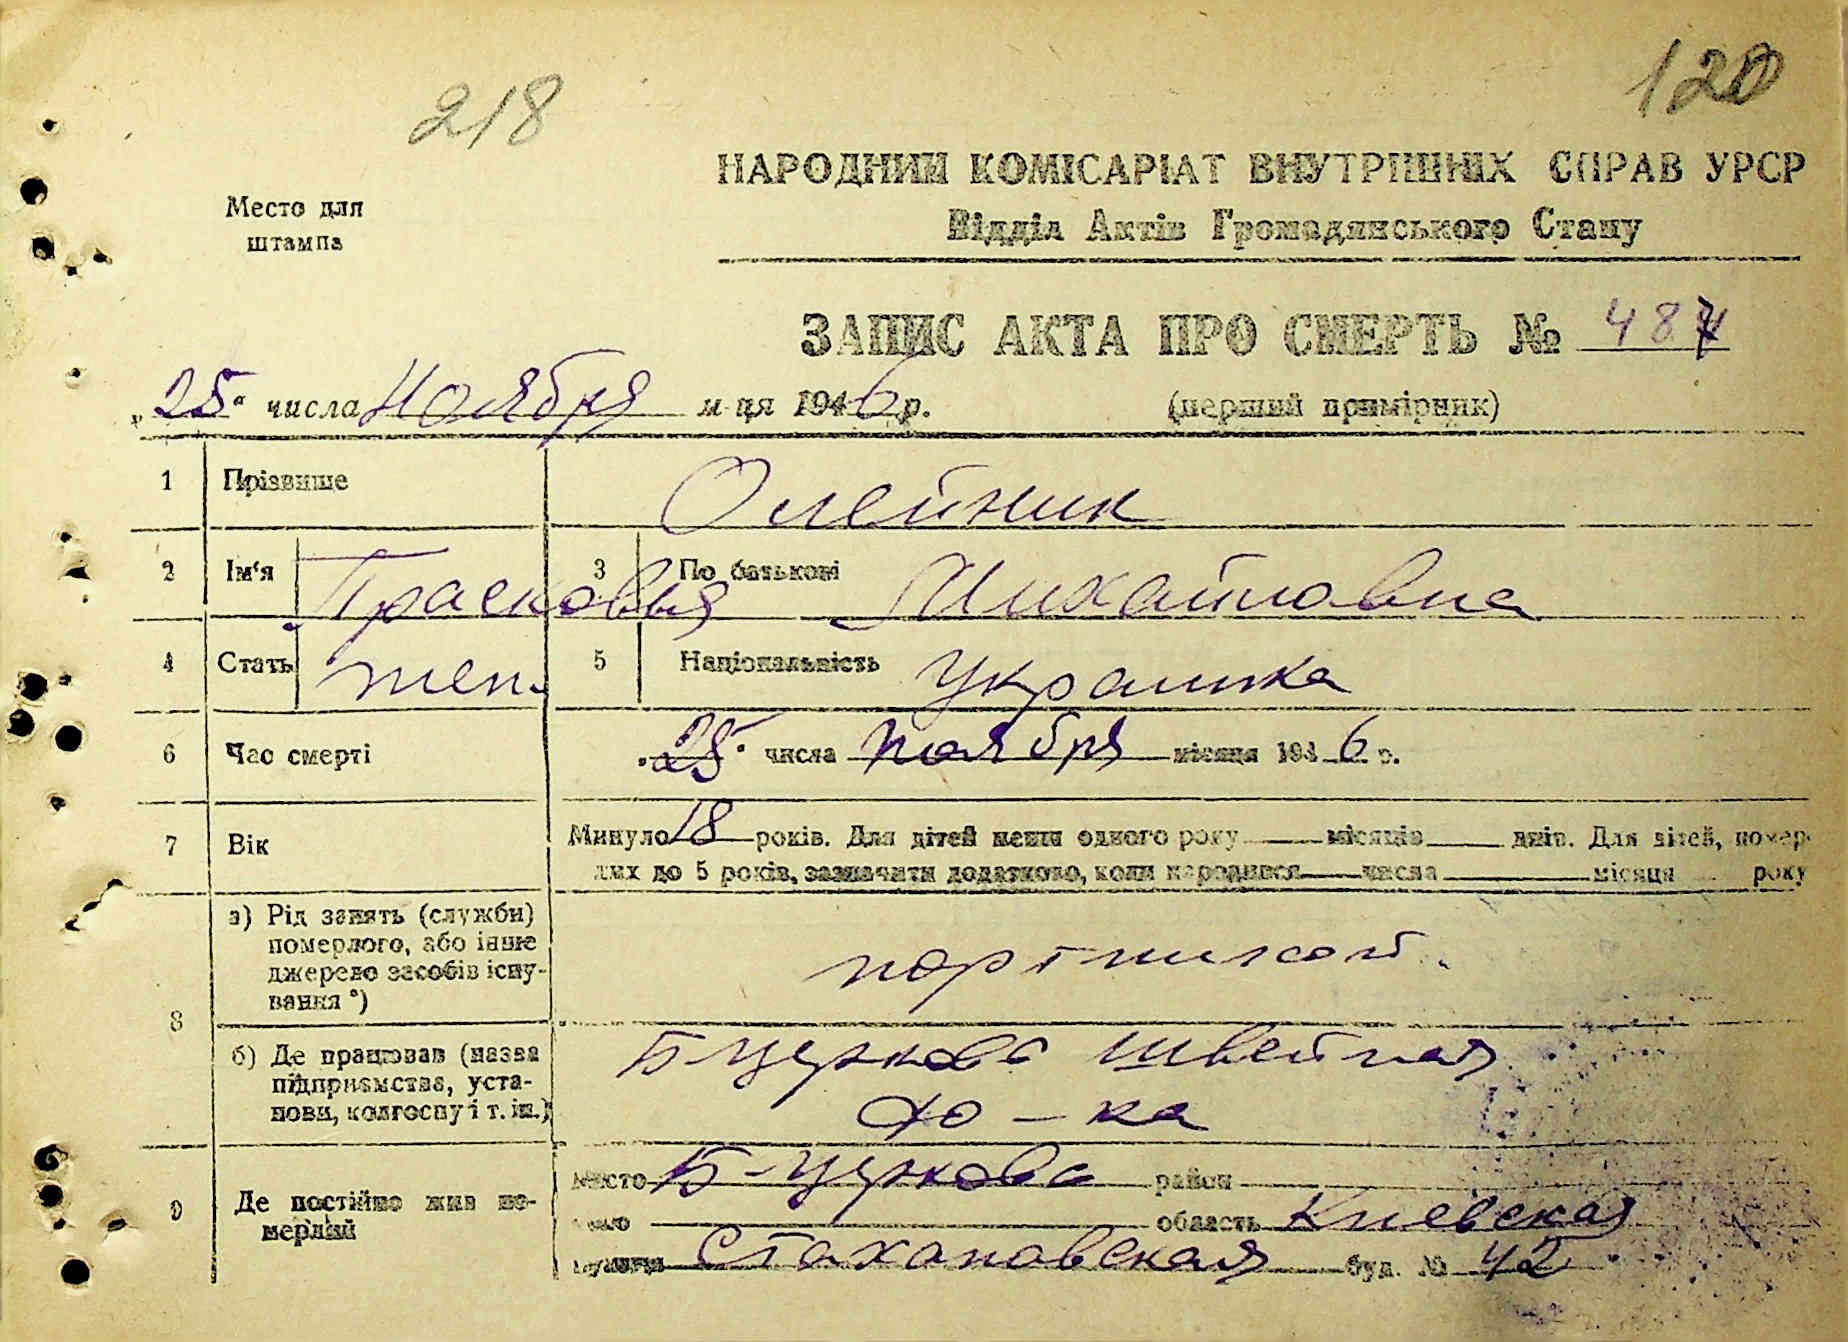 218
120
НАРОДНИЙ КОМІСАРІАТ ВНУТРІШНІХ СПРАВ УРСР
Место для
штампа
Відділ Актів Громадянського Стану
ЗАПИС АКТА ПРО СМЕРТЬ № 487
„25“ числа Ноября м-ця 1946 р. (перший примірник)
1 Прізвище Олейник
2 Ім'я Прасковья 3 По батькові Михайловна
4 Стать жен. 5 Національність Украинка
6 Час смерті „25“ числа ноября місяця 1946 р.
7 Вік Минуло 18 років. Для дітей менш одного року місяців днів. Для дітей, помер-
лих до 5 років, зазначити додатково, коли народився числа місяця року
8 а) Рід занять (служби)
померлого, або інше
джерело засобів існу-
вання *)
портнихой.
б) Де працював (назва
підприємства, уста-
нови, колгоспу і т. ін.)
Б-Церковс Швейная
ф-ка
9 Де постійно жив по-
мерлий
місто Б-Церковс район
село область Киевская
вулиця Стахановская буд. № 42